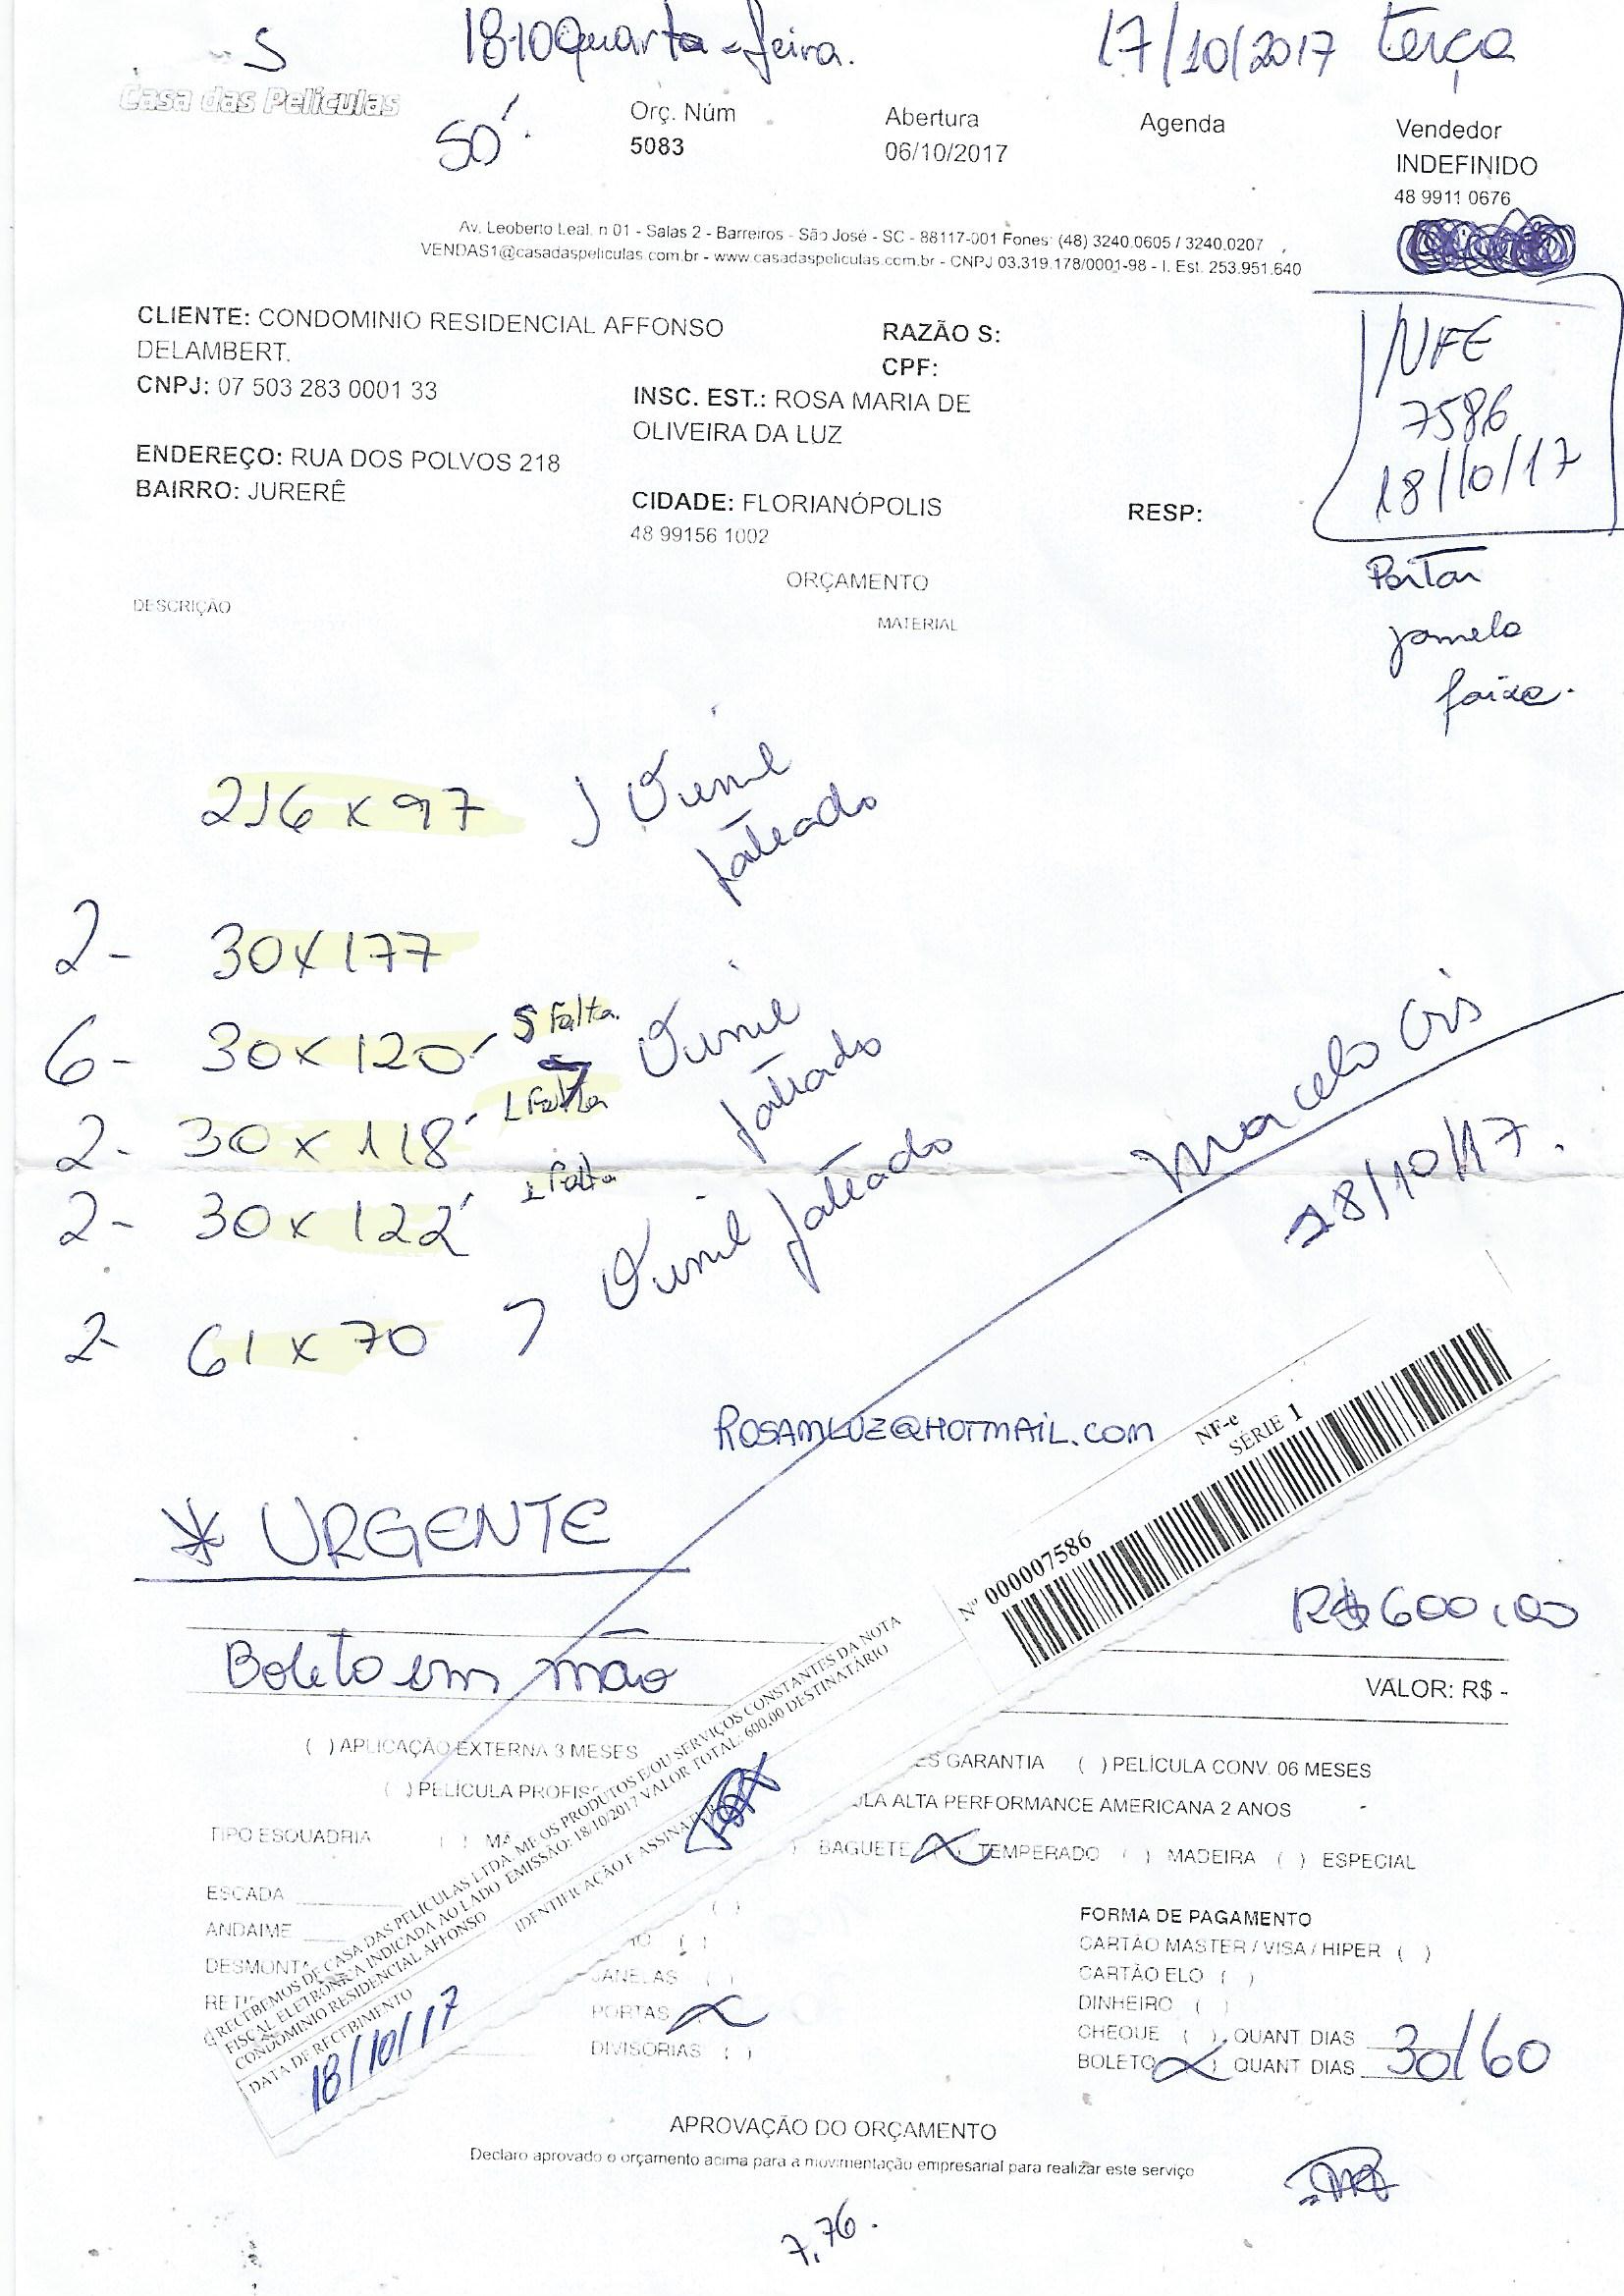 S
18-10 Quarta-feira.
17/10/2017 terça
Casa das Películas
50'
Orç. Núm
5083
Abertura
06/10/2017
Agenda
Vendedor
INDEFINIDO
48 9911 0676
Av. Leoberto Leal, n 01 - Salas 2 - Barreiros - São José - SC - 88117-001 Fones: (48) 3240.0605 / 3240.0207
VENDAS1@casadaspeliculas.com.br - www.casadaspeliculas.com.br - CNPJ 03.319.178/0001-98 - I. Est. 253.951.640
CLIENTE: CONDOMINIO RESIDENCIAL AFFONSO
DELAMBERT.
CNPJ: 07 503 283 0001 33
RAZÃO S:
CPF:
INSC. EST.: ROSA MARIA DE
OLIVEIRA DA LUZ
NFE
7586
18/10/17
ENDEREÇO: RUA DOS POLVOS 218
BAIRRO: JURERÊ
CIDADE: FLORIANÓPOLIS
48 99156 1002
RESP:
ORÇAMENTO
DESCRIÇÃO
MATERIAL
faixa.
216 x 97
jateado
2- 30x177
6- 30x120 5 Falta.
jateado
2- 30 x 118 1 Falta
2- 30 x 122 1 Falta
jateado
2- 61 x 70
Marcelo Cris
18/10/17.
ROSAMLUZ@HOTMAIL.COM
* URGENTE
NF-e
SÉRIE 1
Nº 000007586
R$ 600,00
Boleto em mão
VALOR: R$ -
( ) APLICAÇÃO EXTERNA 3 MESES
ES GARANTIA ( ) PELÍCULA CONV. 06 MESES
( ) PELÍCULA PROFISS
ULA ALTA PERFORMANCE AMERICANA 2 ANOS
TIPO ESQUADRIA ( ) MA
) BAGUETE ( ) TEMPERADO ( ) MADEIRA ( ) ESPECIAL
RECEBEMOS DE CASA DAS PELÍCULAS LTDA. ME OS PRODUTOS E/OU SERVIÇOS CONSTANTES DA NOTA
FISCAL ELETRÔNICA INDICADA AO LADO EMISSÃO: 18/10/2017 VALOR TOTAL: 600,00 DESTINATÁRIO
CONDOMINIO RESIDENCIAL AFFONSO
DATA DE RECEBIMENTO
IDENTIFICAÇÃO E ASSINATUR
18/10/17
ESCADA
ANDAIME
DESMONTA
JANELAS ( )
PORTAS
DIVISORIAS ( )
FORMA DE PAGAMENTO
CARTÃO MASTER / VISA / HIPER ( )
CARTÃO ELO ( )
DINHEIRO ( )
CHEQUE ( ) QUANT DIAS
BOLETO ( ) QUANT DIAS 30/60
APROVAÇÃO DO ORÇAMENTO
Declaro aprovado o orçamento acima para a movimentação empresarial para realizar este serviço
7,76.